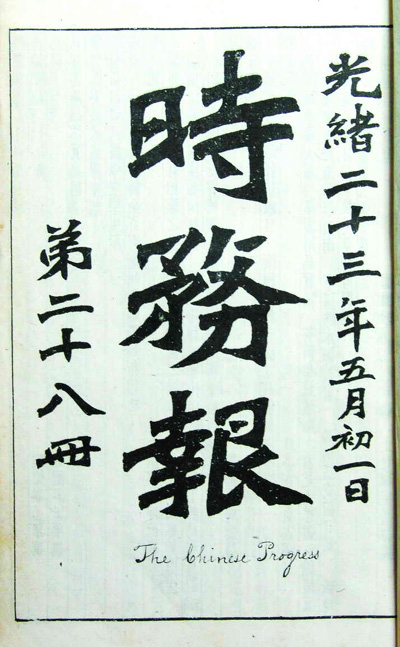 光緒二十三年五月初一日
時務報
第二十八冊
The Chinese Progress